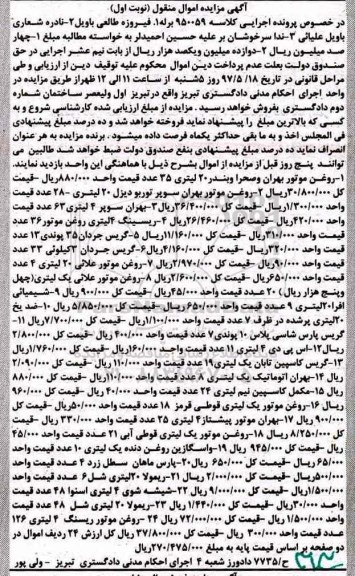 آگهی مزایده اموال منقول (نوبت اول)
در خصوص پرونده اجرایی کلاسه ۹۵۰۰۵۹ برله۱. فیروزه طالعی باویل۲-نادره شعاری
باویل علیائی ۳-ندا سرخوشان بر علیه حسین احمدیلر به خواسته مطالبه مبلغ ۱-چهار
صد میلیون ریال ۲-دوازده میلیون ویکصد هزار ریال از بابت نیم عشر اجرایی در حق
صندوق دولت بعلت عدم پرداخت دین اموال محکوم علیه توقیف دین از ارزیابی و طی
مراحل قانونی در تاریخ ۹۷/۵/۱۸ روز ۵شنبه از ساعت ۱۱ الی ۱۲ ظهراز طریق مزایده در
واحد اجرای احکام مدنی دادگستری تبریز واقع درتبریز اول ولیعصر ساختمان شماره
دوم دادگستری بفروش خواهد رسید . مزایده از مبلغ ارزیابی شده کارشناسی شروع و به
کسی که بالاترین مبلغ را پیشنهاد نماید فروخته خواهد شد و ده درصد مبلغ پیشنهادی
فی المجلس اخذ و به ما بقی حداکثر یکماه فرصت داده میشود . برنده مزایده به هر عنوان
انصراف نماید ده درصد مبلغ پیشنهادی بنفع صندوق دولت ضبط خواهد شد طالبین می
توانند پنج روز قبل از مزایده از اموال بشرح ذیل با هماهنگی این واحد بازدید نمایند.
۱-روغن موتور بهران وصحرا وبندر۲۰ لیتری ۳۵ عدد قیمت واحد ۸۸۰/۰۰۰ریال -قیمت
کل ۳۰/۸۰۰/۰۰۰ریال ۲-روغن موتور بهران سوپر توربو دیزل ۲۰ لیتری -۲۸ عدد قیمت
واحد ۱/۳۰۰/۰۰۰ ریال -قیمت کل ۳۶/۴۰۰/۰۰۰ریال۳-بهران سوپر ۴ لیتری۶۳ عدد قیمت
واحد ۴۲۰/۰۰۰ریال -قیمت کل ۲۶/۴۶۰/۰۰۰ریال ۴-ریسینگ ۴لیتری روغن موتور۳۶ عدد
قیمت واحد ۳۱۰/۰۰۰ریال -قیمت کل ۱۱/۱۶۰/۰۰۰ریال ۵-گریس جردان۳۵ پوندی۱۳ عدد
قیمت واحد ۳۲۰/۰۰۰ریال -قیمت کل۴/۱۶۰/۰۰۰ریال۶-گریس جردان ۱کیلوئی ۳۳ عدد
قیمت واحد ۹۰/۰۰۰ریال -قیمت کل ۲/۹۷۰/۰۰۰ریال ۷-روغن موتور علائی ۲۰ لیتری ۴ عدد
قیمت واحد ۶۵۰/۰۰۰ریال -قیمت کل ۲/۶۰۰/۰۰۰ریال ۸-روغن موتور علائی یک لیتری(چهل
وپنج هزار ریال ) ۲۰ عدد قیمت واحد ۴۵/۰۰۰ریال -قیمت کل ۹۰۰/۰۰۰ ریال ۹-شیمیائی
افرا۲۰لیتری ۹ عدد قیمت واحد ۶۵۰/۰۰۰ ریال -قیمت کل ۵/۸۵۰/۰۰۰ ریال ۱۰-ضد یخ
۲۰لیتری پرشده در ظرف ۷ عدد قیمت واحد ۱/۱۰۰/۰۰۰ریال -قیمت کل ۷/۷۰۰/۰۰۰ریال ۱۱-
گریس پارش شاسی پلاس ۱۰ پوندی۷ عدد قیمت واحد ۴۰۰/۰۰۰ریال -قیمت کل ۲/۸۰۰/۰۰۰
ریال۱۲-اس پی دی ۴ لیتری ۱۱ عدد قیمت واحد ۱۶۰/۰۰۰ریال -قیمت کل ۱/۷۶۰/۰۰۰ریال
۱۳-گریس کاسپین تابان یک لیتری۱۹ عدد قیمت واحد ۱۱۰/۰۰۰ ریال -قیمت کل ۲/۰۹۰/۰۰۰
ریال ۱۴-بهران اتوماتیک یک لیتری ۸ عدد قیمت واحد ۱۱۰/۰۰۰ریال -قیمت کل ۸۸۰/۰۰۰
ریال ۱۵-مکمل کاسپین نیم لیتری ۲۴ عدد قیمت واحد ۴۰/۰۰۰ ریال -قیمت کل ۹۶۰/۰۰۰
ریال ۱۶-روغن موتور یک لیتری قوطی قرمز ۱۸ عدد قیمت واحد ۵۰/۰۰۰ریال -قیمت کل
۹۰۰/۰۰۰ ریال ۱۷-بهران موتور پیشتاز۴ لیتری ۲۵ عدد قیمت واحد ۳۳۰/۰۰۰ ریال -قیمت
کل ۸/۲۵۰/۰۰۰ ریال ۱۸-روغن موتور یک لیتری قوطی آبی ۲۱ عدد قیمت واحد ۴۵/۰۰۰
ریال -قیمت کل ۹۴۵/۰۰۰ ریال ۱۹-واسگازین روغن دنده یک لیتری ۱۰ عدد قیمت واحد
۶۵/۰۰۰ ریال -قیمت کل ۶۵۰/۰۰۰ ریال۲۰-پارس ماهان سطل زرد ۴ عدد قیمت واحد
۵۰۰/۰۰۰ریال -قیمت کل ۲/۰۰۰/۰۰۰ ریال ۲۱-ریمولا ۲۰لیتری شل۶ عدد قیمت واحد
۱/۵۰۰/۰۰۰ریال -قیمت کل ۹/۰۰۰/۰۰۰ ریال ۲۲-شیشه شوی ۴ لیتری اسنوا ۴۸ عدد قیمت
واحد ۳۰/۰۰۰ریال -قیمت کل ۱/۴۴۰/۰۰۰ ریال ۲۳-ریمولا ۲۰ لیتری شل ۴۸ عدد قیمت
واحد ۱/۵۰۰/۰۰۰ ریال -قیمت کل ۷۲/۰۰۰/۰۰۰ ریال ۲۴ -روغن موتور ریسنگ ۴ لیتری ۱۲۶
عدد قیمت واحد ۳۰۰/۰۰۰ ریال -قیمت کل ۳۷/۸۰۰/۰۰۰ ریال کل ارزش ۲۴ ردیف اموال در
دو صفحه بر اساس قیمت پایه به مبلغ ۲۷۰/۴۷۵/۰۰۰ریال
ح/۷۷۳۵ دادورز شعبه ۴ اجرای احکام مدنی دادگستری تبریز - ولی پور